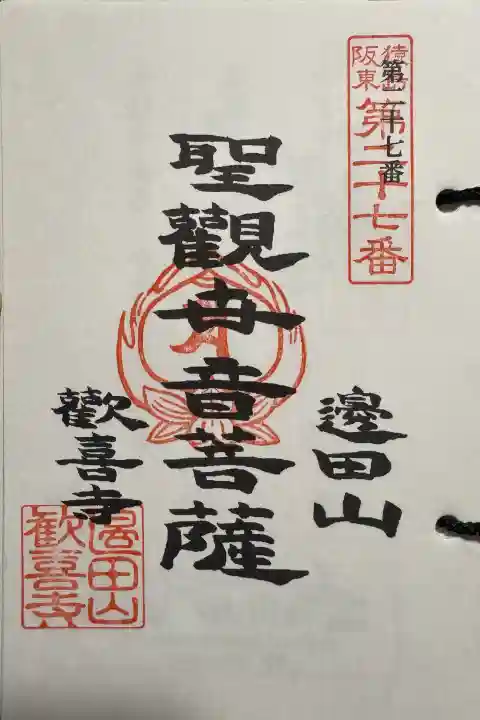 猿島
阪東
第二十七番
第二十七番
邊田山
聖觀世音菩薩
歡喜寺
邊田山
歓喜寺